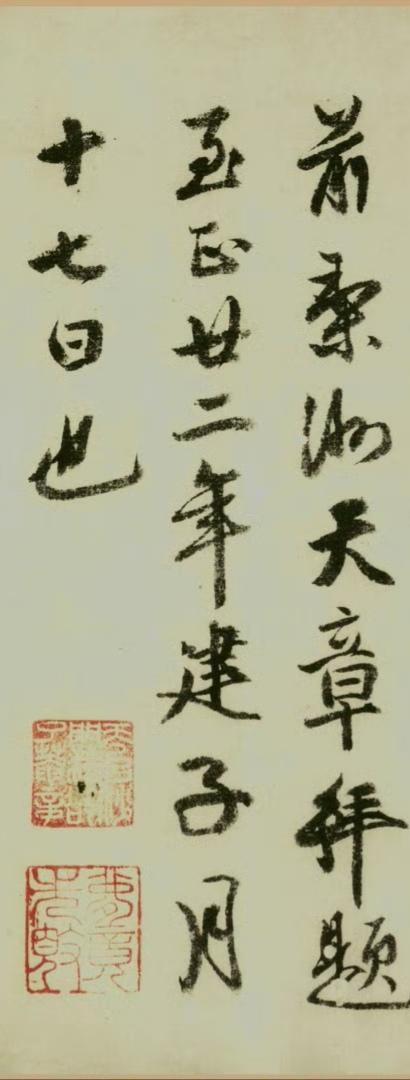 前洲天章拜題
至正廿二年建子月
十七日也